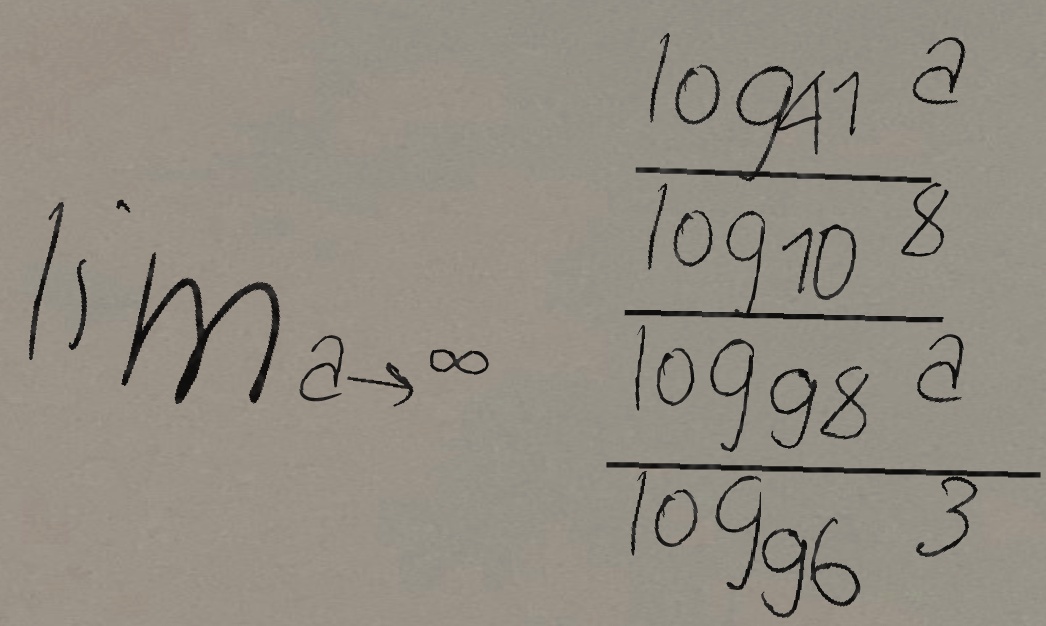 lim_{a \to \infty} \frac{\frac{\frac{\log_{41} a}{\log_{10} 8}}{\log_{98} a}}{\log_{96} 3}